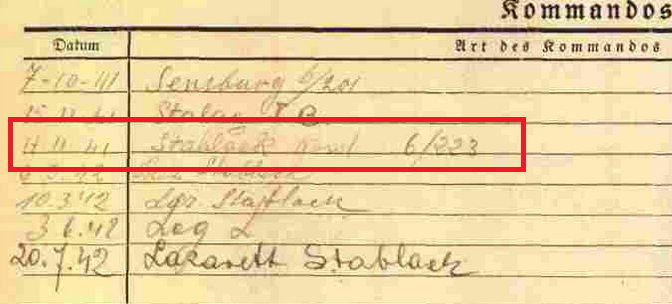 Kommandos
Datum Art des Kommandos
7-10-41 Sensburg 6/201
15.11.41 Stalag I B
41 Stablack 6/223
42 Stablack
10.3.42 Lgr. Stablack
3.6.42 Lag
20.7.42 Lazarett Stablack